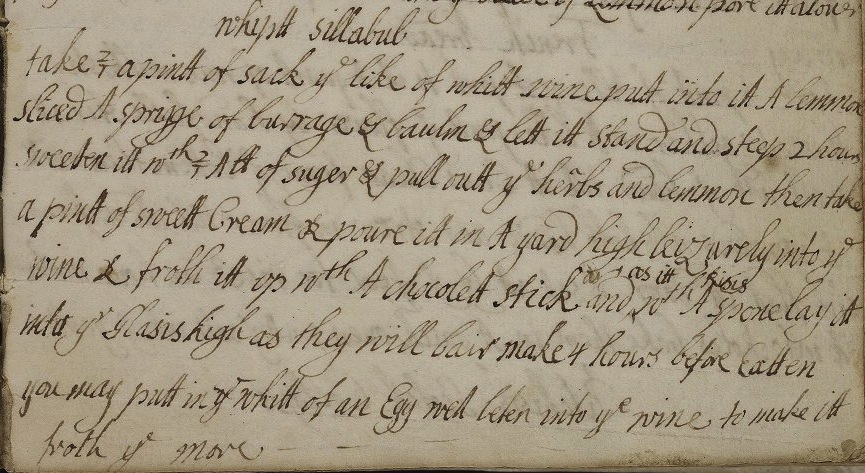 Lemmon pore itt alouer
whiptt sillabub
take ½ a pintt of sack ye like of whitt wine putt into itt A lemmon
sliced A sprigge of burrage & baulm & lett itt stand and steep 2 hours
sweeten itt wth ½ A ℔ of suger & pull outt ye herbs and lemmon then take
a pintt of sweett Cream & poure itt in A yard high leizurely into ye
wine & froth itt vp wth A chocolett stick and as itt rises wth A spone lay itt
into yr Glasis high as they will bair make 4 hours before Eatten
you may putt in ye whitt of an Egg well beten into ye wine to make itt
froth ye more